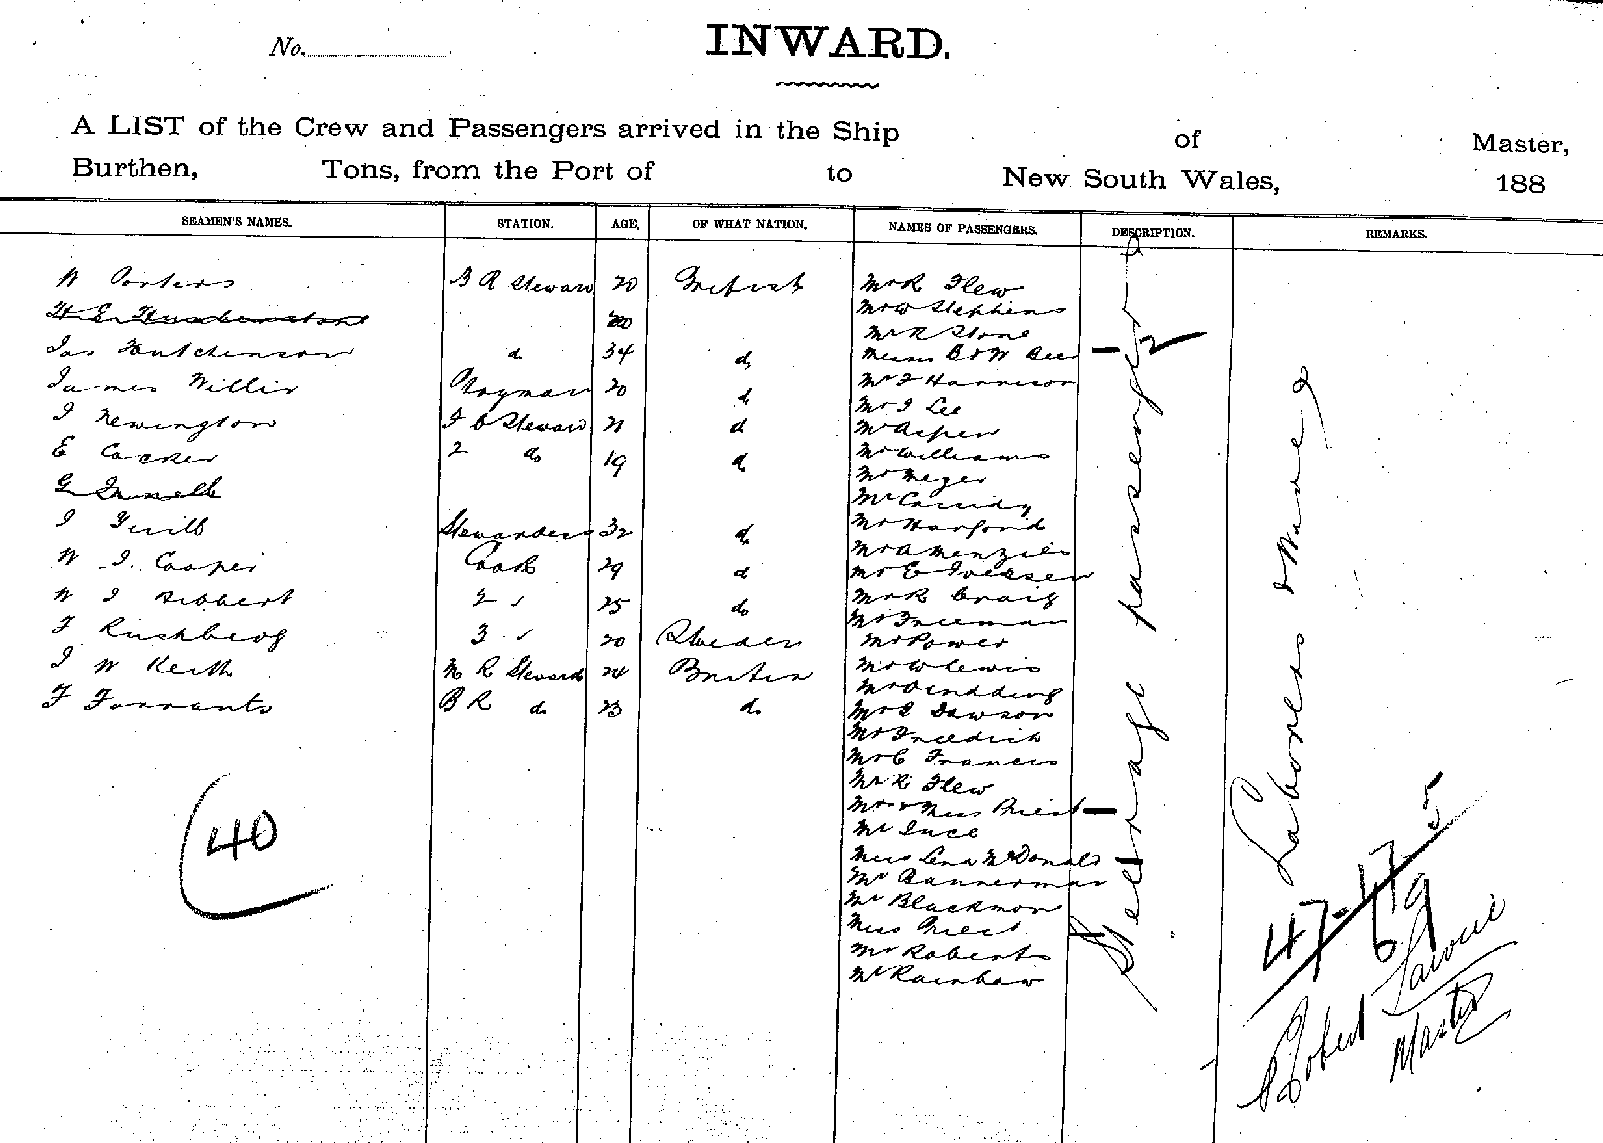 No.
INWARD.
A LIST of the Crew and Passengers arrived in the Ship of Master,
Burthen, Tons, from the Port of to New South Wales, 188
SEAMEN'S NAMES. STATION. AGE. OF WHAT NATION. NAMES OF PASSENGERS. DESCRIPTION. REMARKS.
W Porters B R Steward 20 British
20
Jas Hutchinson d 34 d
James Willis 20 d
J Newington Steward 21 d
E Cocker 2 do 19 d
J Stewardess 32 d
W J Cooper Cook 29 d
W J Hibbert 2 " 25 do
F Rushberg 3 " 20
J W Keith M R Steward 24 British
F Farrants B R do 23 do
40
Mr R Flew
Mr W Stephens
Mr R Stone
Messrs B & W Bee
Mr J Harrison
Mr J Lee
Mr Aspen
Mr Williams
Mr Meyer
Mr Cassidy
Mr Harford
Mr A Menzies
Mr E
Mr R Craig
Mr Freeman
Mr Power
Mr W Lewis
Mr
Mr J Dawson
Mr Friedrich
Mr C Francis
Mr R Flew
Mr & Miss Priest
Mr Ince
Miss Lena McDonald
Mr Bannerman
Mr Blackmon
Miss Priest
Mr Roberts
Mr Rainbow
Steerage passengers
2
Laborers
47-17 5
69
Robert
Master